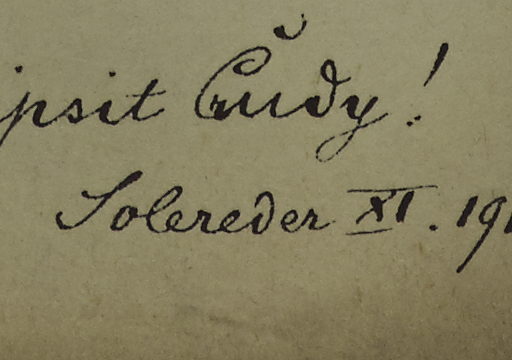 ipsit Cŭdy!
Solereder XI. 191